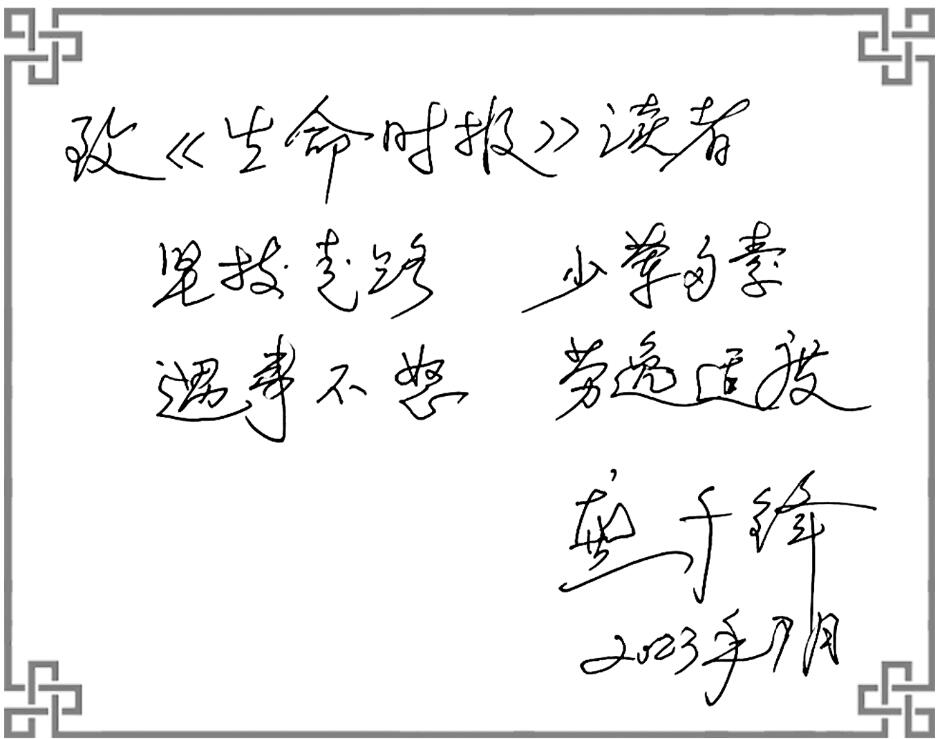 致《生命时报》读者
坚持走路 少荤多素
遇事不怒 劳逸适度
千锋
2023年7月